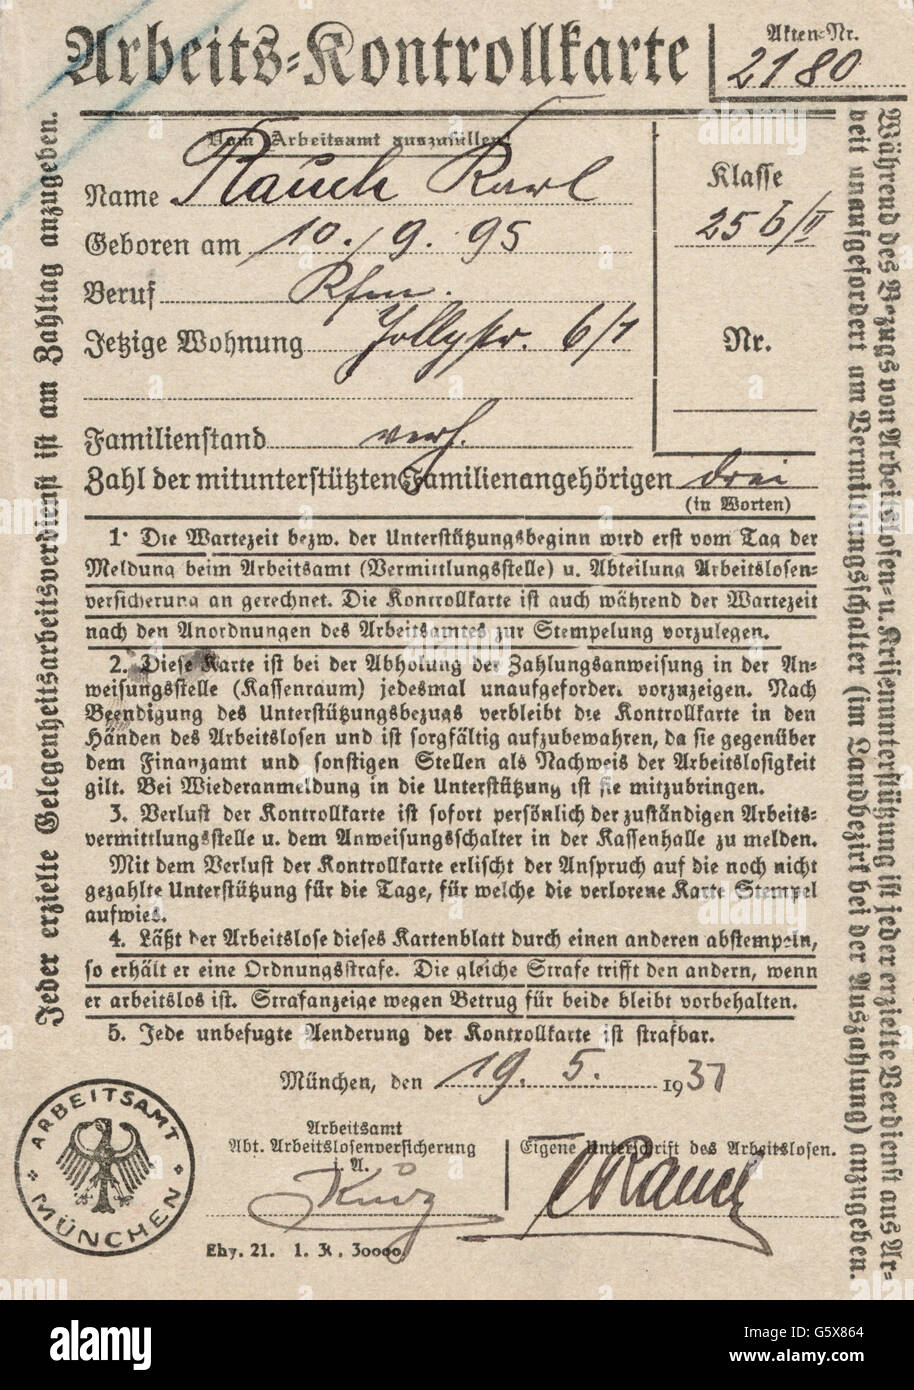 Arbeits-Kontrollkarte
Akten-Nr.
2180
Vom Arbeitsamt auszufüllen!
Name Rauch Karl
Geboren am 10./9. 95
Beruf Kfm.
Jetzige Wohnung Jollystr. 6/1
Familienstand verh.
Zahl der mitunterstützten Familienangehörigen drei
(in Worten)
Klasse
25 b/II
Nr.
1. Die Wartezeit bezw. der Unterstützungsbeginn wird erst vom Tag der
Meldung beim Arbeitsamt (Vermittlungsstelle) u. Abteilung Arbeitslosen-
versicherung an gerechnet. Die Kontrollkarte ist auch während der Wartezeit
nach den Anordnungen des Arbeitsamtes zur Stempelung vorzulegen.
2. Diese Karte ist bei der Abholung der Zahlungsanweisung in der An-
weisungsstelle (Kassenraum) jedesmal unaufgefordert vorzuzeigen. Nach
Beendigung des Unterstützungsbezugs verbleibt die Kontrollkarte in den
Händen des Arbeitslosen und ist sorgfältig aufzubewahren, da sie gegenüber
dem Finanzamt und sonstigen Stellen als Nachweis der Arbeitslosigkeit
gilt. Bei Wiederanmeldung in die Unterstützung ist sie mitzubringen.
3. Verlust der Kontrollkarte ist sofort persönlich der zuständigen Arbeits-
vermittlungsstelle u. dem Anweisungsschalter in der Kassenhalle zu melden.
Mit dem Verlust der Kontrollkarte erlischt der Anspruch auf die noch nicht
gezahlte Unterstützung für die Tage, für welche die verlorene Karte Stempel
aufwies.
4. Läßt der Arbeitslose dieses Kartenblatt durch einen anderen abstempeln,
so erhält er eine Ordnungsstrafe. Die gleiche Strafe trifft den andern, wenn
er arbeitslos ist. Strafanzeige wegen Betrug für beide bleibt vorbehalten.
5. Jede unbefugte Aenderung der Kontrollkarte ist strafbar.
München, den 19. 5. 1931
Arbeitsamt
Abt. Arbeitslosenversicherung
J. A.
Kurz
Eigene Unterschrift des Arbeitslosen.
Rauch
Ehy. 21. 1. 31. 30000.
ARBEITSAMT
MÜNCHEN
Jeder erzielte Gelegenheitsarbeitsverdienst ist am Zahltag anzugeben.
Während des Bezugs von Arbeitslosen- u. Krisenunterstützung ist jeder erzielte Verdienst aus Ar-
beit unaufgefordert am Vermittlungsschalter (im Landbezirk bei der Auszahlung) anzugeben.
alamy
Image ID: G5X864
www.alamy.com